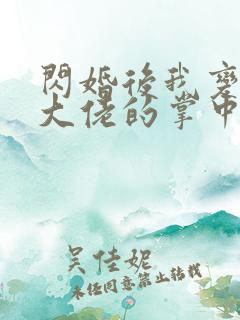 閃婚後我變
大佬的掌中
吴佳妮
未经同意禁止转载